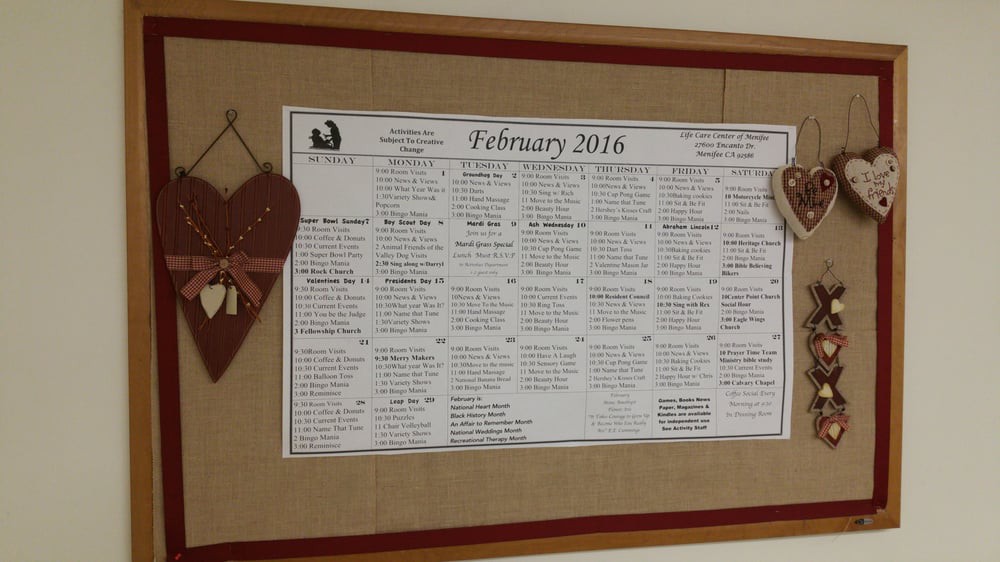 Activities Are
Subject To Creative
Change
February 2016
Life Care Center of Menifee
27600 Encanto Dr.
Menifee CA 92586
SUNDAY MONDAY TUESDAY WEDNESDAY THURSDAY FRIDAY
1
9:00 Room Visits
10:00 News & Views
10:00 What Year Was it
1:30 Variety Shows&
Popcorn
3:00 Bingo Mania
Groundhog Day 2
9:00 Room Visits
10:00 News & Views
10:30 Darts
11:00 Hand Massage
2:00 Cooking Class
3:00 Bingo Mania
3
9:00 Room Visits
10:00 News & Views
10:30 Sing w/ Rich
11 Move to the Music
2:00 Beauty Hour
3:00 Bingo Mania
4
9:00 Room Visits
10:00News & Views
10:30 Cup Pong Game
11:00 Name that Tune
2 Hershey's Kisses Craft
3:00 Bingo Mania
5
9:00 Room Visits
10:00 News & Views
10:30Baking cookies
11:00 Sit & Be Fit
2:00 Happy Hour
3:00 Bingo Mania
9:00 Room
10 Motorcycle
11:00 Sit & Be Fit
2:00 Nails
3:00 Bingo Mania
Super Bowl Sunday7
9:30 Room Visits
10:00 Coffee & Donuts
10:30 Current Events
11:00 Super Bowl Party
2:00 Bingo Mania
3:00 Rock Church
Boy Scout Day 8
9:00 Room Visits
10:00 News & Views
2 Animal Friends of the
Valley Dog Visits
2:30 Sing along w/Darryl
3:00 Bingo Mania
Mardi Gras 9
Join us for a
Mardi Grass Special
Lunch *Must R.S.V.P
Ash Wednesday 10
9:00 Room Visits
10:00 News & Views
10:30 Cup Pong Game
11:00 Move to the Music
2:00 Beauty Hour
3:00 Bingo Mania
11
9:00 Room Visits
10:00 News & Views
10:30 Dart Toss
11:00 Name that Tune
2 Valentine Mason Jar
3:00 Bingo Mania
Abraham Lincoln12
9:00 Room Visits
10:00 News & Views
10:30Baking cookies
11:00 Sit & Be Fit
2:00 Happy Hour
3:00 Bingo Mania
13
9:00 Room Visits
10:00 Heritage Church
11:00 Sit & Be Fit
2:00 Bingo Mania
3:00 Bible Believing
Bikers
Valentines Day 14
9:30 Room Visits
10:00 Coffee & Donuts
10:30 Current Events
11:00 You be the Judge
2:00 Bingo Mania
3 Fellowship Church
Presidents Day15
9:00 Room Visits
10:00 News & Views
10:30What year Was It?
11:00 Name that Tune
1:30Variety Shows
3:00 Bingo Mania
16
9:00 Room Visits
10News & Views
10:30 Move To the Music
11:00 Hand Massage
2:00 Cooking Class
3:00 Bingo Mania
17
9:00 Room Visits
10:00 Current Events
10:30 Ring Toss
11:00 Move to the Music
2:00 Beauty Hour
3:00 Bingo Mania
18
9:00 Room Visits
10:00 Resident Council
10:30 News & Views
11:00 Move to the Music
2:00 Flower pens
3:00 Bingo Mania
19
9:00 Room Visits
10:00 Baking Cookies
10:30 Sing with Rex
11:00 Sit & Be Fit
2:00 Happy Hour
3:00 Bingo Mania
20
9:00 Room Visits
10Center Point Church
Social Hour
2:00 Bingo Mania
3:00 Eagle Wings
Church
21
9:30Room Visits
10:00 Coffee & Donuts
10:30 Current Events
11:00 Balloon Toss
2:00 Bingo Mania
3:00 Reminisce
22
9:00 Room Visits
9:30 Merry Makers
10:30What year Was It?
11:00 Name that Tune
1:30 Variety Shows
3:00 Bingo Mania
23
9:00 Room Visits
10:00 News & Views
10:30Move to the music
11:00 Hand Massage
2 National Banana Bread
3:00 Bingo Mania
24
9:00 Room Visits
10:00 Have A Laugh
10:30 Sensory Game
11:00 Move to the Music
2:00 Beauty Hour
3:00 Bingo Mania
25
9:00 Room Visits
10:00 News & Views
10:30 Cup Pong Game
11:00 Name that Tune
2 Hershey's Kisses Craft
3:00 Bingo Mania
26
9:00 Room Visits
10:00 News & Views
10:30 Baking Cookies
11:00 Sit & Be Fit
2 Happy Hour w/ Chris
3:00 Bingo Mania
27
9:00 Room Visits
10 Prayer Time Team
Ministry bible study
10:30 Current Events
2:00 Bingo Mania
3:00 Calvary Chapel
28
9:30 Room Visits
10:00 Coffee & Donuts
10:30 Current Events
11:00 Name That Tune
2 Bingo Mania
3:00 Reminisce
Leap Day 29
9:00 Room Visits
10:30 Puzzles
11 Chair Volleyball
1:30 Variety Shows
3:00 Bingo Mania
February is:
National Heart Month
Black History Month
An Affair to Remember Month
National Weddings Month
Recreational Therapy Month
February
Games, Books News
Paper, Magazines &
Kindles are available
for independent use
See Activity Staff
Coffee Social Every
Morning at 9:30
In Dinning Room
I love
my
friends